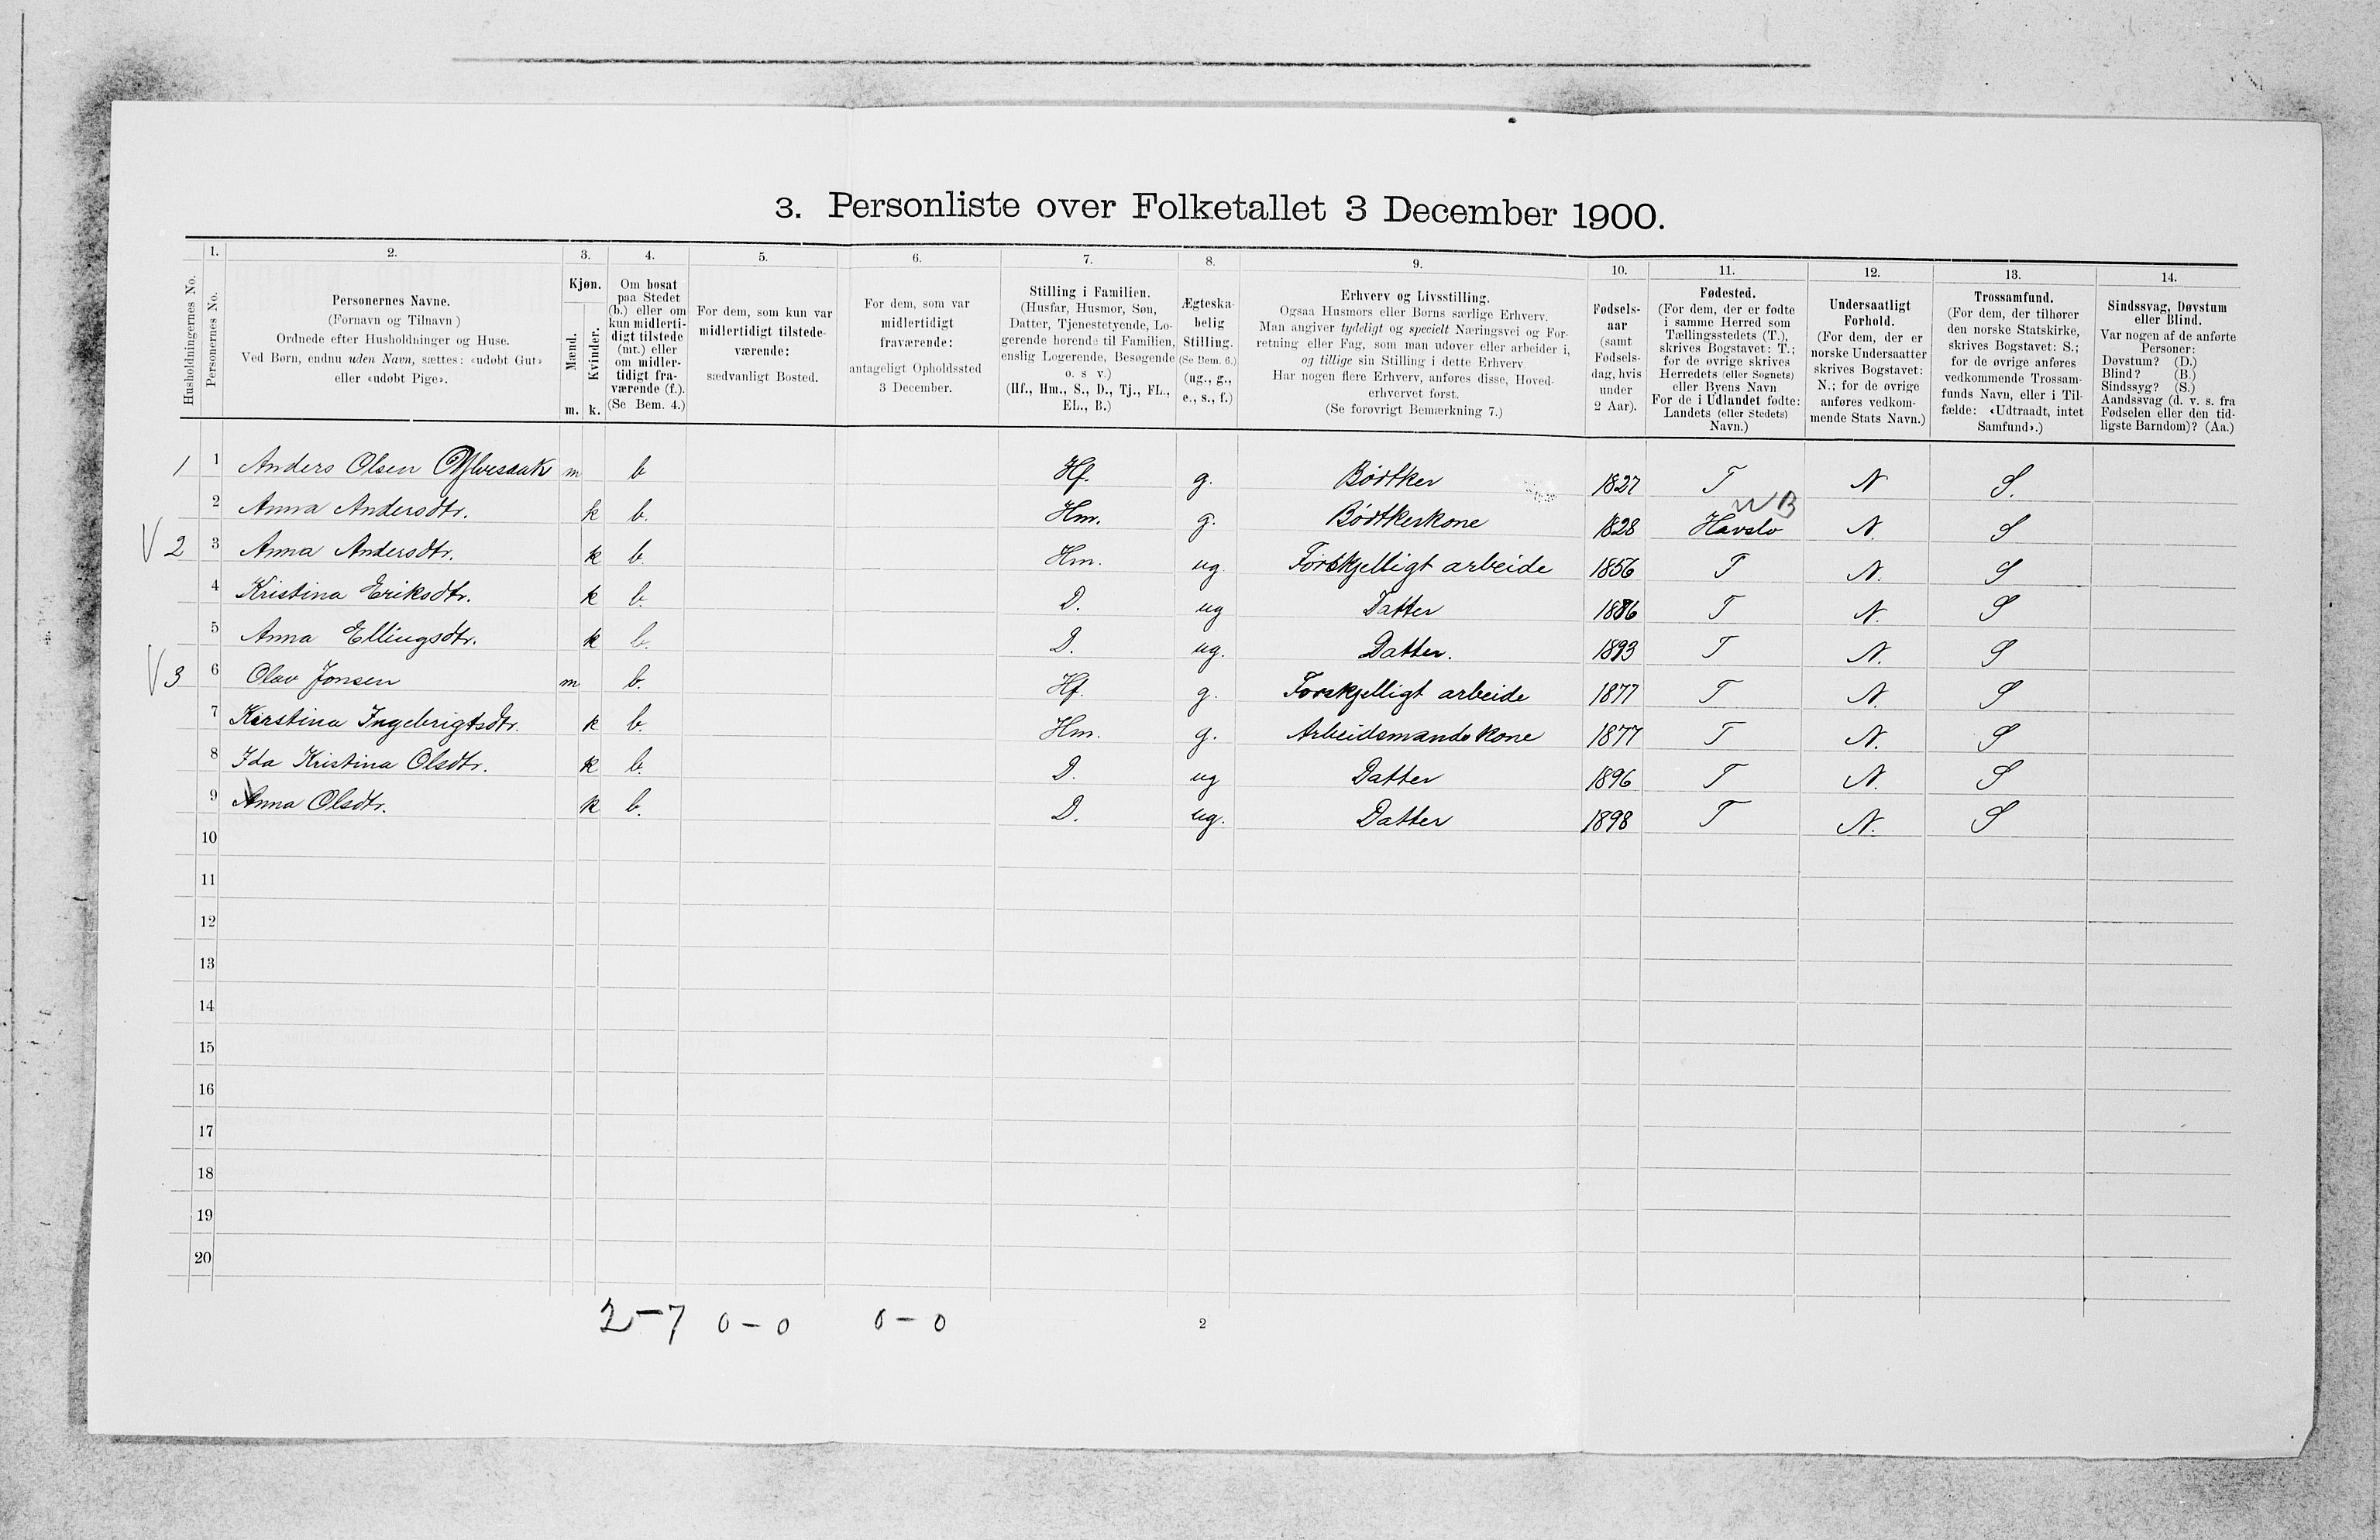 3. Personliste over Folketallet 3 December 1900.
1. 2. 3. 4. 5. 6. 7. 8. 9. 10. 11. 12. 13. 14.
Husholdningernes No.
Personernes No.
Personernes Navne.
(Fornavn og Tilnavn)
Ordnede efter Husholdninger og Huse.
Ved Børn, endnu uden Navn, sættes: «udøbt Gut»
eller «udøbt Pige».
Kjøn.
Mænd.
Kvinder.
m. k.
Om bosat
paa Stedet
(b.) eller om
kun midlerti-
digt tilstede
(mt.) eller
om midler-
tidigt fra-
værende (f.).
(Se Bem. 4.)
For dem, som kun var
midlertidigt tilstede-
værende:
sædvanligt Bosted.
For dem, som var
midlertidigt
fraværende:
antageligt Opholdssted
3 December.
Stilling i Familien.
(Husfar, Husmor, Søn,
Datter, Tjenestetyende, Lo-
gerende hørende til Familien,
enslig Logerende, Besøgende
o. s v.)
(Hf., Hm., S., D., Tj., FL.,
EL., B.)
Ægteska-
belig
Stilling.
(Se Bem. 6.)
(ug., g.,
e., s., f.)
Erhverv og Livsstilling.
Ogsaa Husmors eller Børns særlige Erhverv.
Man angiver tydeligt og specielt Næringsvei og For-
retning eller Fag, som man udøver eller arbeider i,
og tillige sin Stilling i dette Erhverv.
Har nogen flere Erhverv, anføres disse, Hoved-
erhvervet først.
(Se forøvrigt Bemærkning 7.)
Fødsels-
aar
(samt
Fødsels-
dag, hvis
under
2 Aar).
Fødested.
(For dem, der er fødte
i samme Herred som
Tællingsstedets (T.),
skrives Bogstavet: T.;
for de øvrige skrives
Herredets (eller Sognets)
eller Byens Navn
For de i Udlandet fødte:
Landets (eller Stedets)
Navn.)
Undersaatligt
Forhold.
(For dem, der er
norske Undersaatter
skrives Bogstavet:
N.; for de øvrige
anføres vedkom-
mende Stats Navn.)
Trossamfund.
(For dem, der tilhører
den norske Statskirke,
skrives Bogstavet: S.;
for de øvrige anføres
vedkommende Trossam-
funds Navn, eller i Til-
fælde: «Udtraadt, intet
Samfund».)
Sindssvag, Døvstum
eller Blind.
Var nogen af de anførte
Personer:
Døvstum? (D.)
Blind? (B.)
Sindssyg? (S.)
Aandssvag (d. v. s. fra
Fødselen eller den tid-
ligste Barndom)? (Aa.)
1 1 Anders Olsen m b Hf. g. Bødtker 1827 T N S.
2 Anna Andersdtr. k b. Hm. g. Bødtkerkone 1828 Havslo N. S
NB
V 2 3 Anna Andersdtr. k b. Hm. ug. Forskjelligt arbeide 1856 T N. S
4 Kristina Eriksdtr. k b. D. ug Datter 1886 T N. S
5 Anna Ellingsdtr. k b. D. ug. Datter. 1893 T N. S
V 3 6 Olav Jonsen m b. Hf. g. Forskjelligt arbeide 1877 T N. S
7 Kirstina Ingebrigtsdtr. k b. Hm. g. Arbeidsmandskone 1877 T N. S
8 Ida Kristina Olsdtr. k b. D. ug Datter 1896 T N. S
9 Anna Olsdtr. k b. D. ug. Datter 1898 T N. S
10
11
12
13
14
15
16
17
18
19
20
2-7 0-0 0-0 2